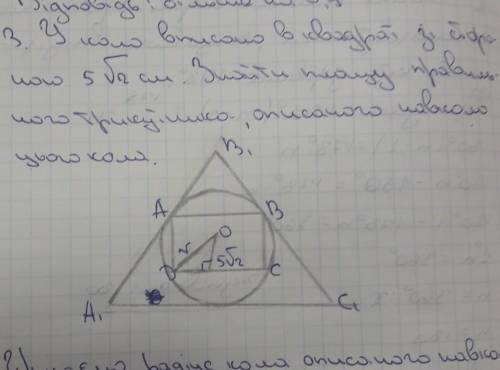 3. У коло вписано в квадрат зі сторо
ного 5√2 см. Знайти площу правиль
ного трикутника, описаного навколо
цього кола.
B₁
A B
O
r 5√2
D C
A₁ C₁
радіус кола описаного навко